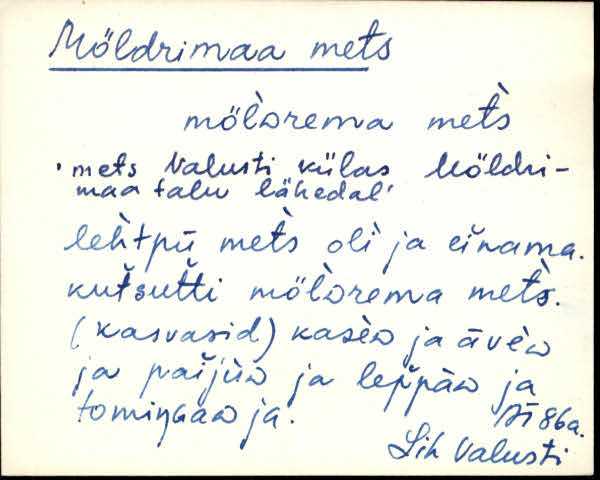 Möldrimaa mets
möl̀ᴅrema met̀s
'mets Valusti külas Möldri-
maa talu lähedal'
leh̀tpū met̀s olì ja ei̮nama.
kut̆sut̆ti möl̀ᴅrema met̀s.
(kasvasid) kasèᴅ ja āvèᴅ
ja paijùᴅ ja lep̆pàᴅ ja
tomiŋɢaᴅ ja.
86a.
Lih Valusti